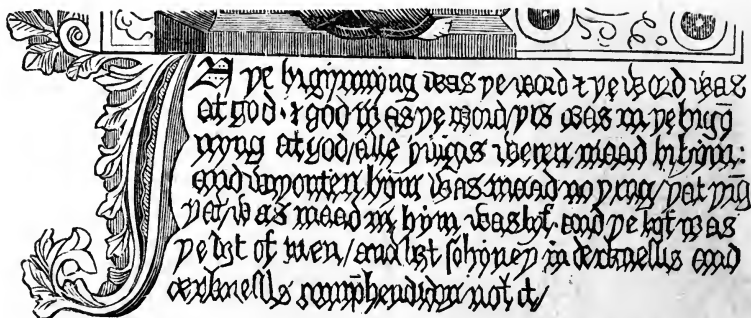 IN þe bigynnyng was þe word & þe word was
at god / & god was þe word / þis was in þe bigyn̄
nyng at god / alle þingis weren maad bi hym:
and wiþouten hym was maad no þing / þat þīg
þat was maad in hym was lyf. and þe lyf was
þe liȝt of men / and liȝt schyneþ in derknessis and
derknessis comp̄hendiden not it /